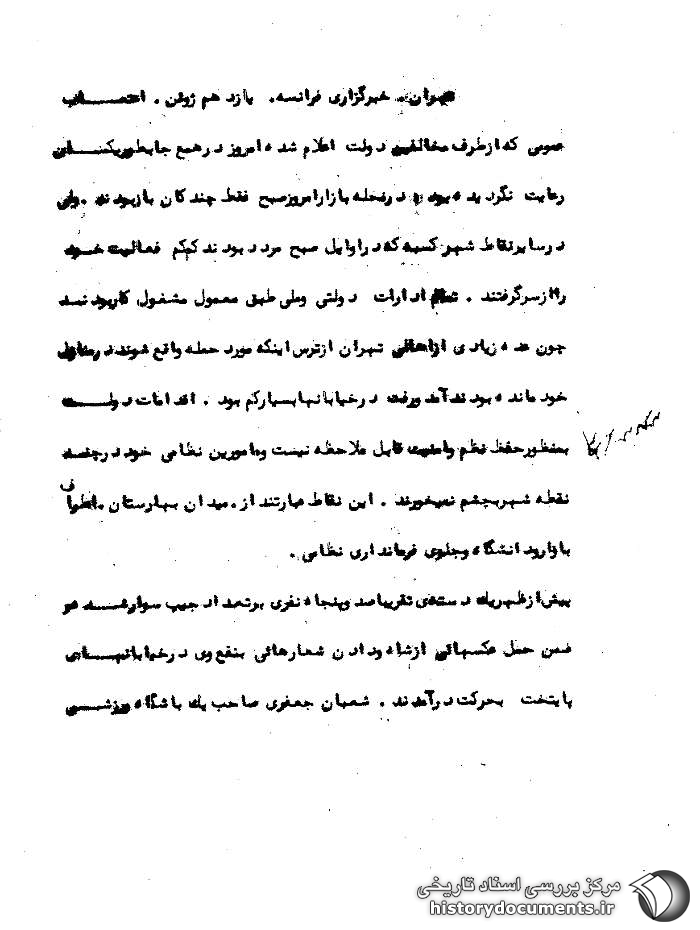 تهران. خبرگزاری فرانسه. یازدهم ژوئن. اعتصاب
عمومی که ازطرف مخالفین دولت اعلام شده امروز درهمه جا بطوریکسان
رعایت نگردیده بود و درمحله بازار امروزصبح فقط چند دکان بازبودند. ولی
درسایرنقاط شهر کسبه که دراوایل صبح مردد بودند کم‌کم فعالیت خود
را ازسرگرفتند. تمام ادارات دولتی وملی طبق معمول مشغول کاربودند
چون عده زیادی ازاهالی تهران ازترس اینکه مورد حمله واقع شوند درمنازل
خود مانده بودند آمدورفت درخیابانها بسیارکم بود. اقدامات دولت
بمنظورحفظ نظم وامنیت قابل ملاحظه نیست ومامورین نظامی خود درچند
نقطه شهر بچشم نمیخورند. این نقاط عبارتند از. میدان بهارستان. اطراف
بازارودانشگاه وجلوی فرمانداری نظامی.
پیش ازظهریک دسته‌ی تقریبا صد وپنجاه نفری برتعداد جیپ سوارشده و
ضمن حمل عکسهائی ازشاه ودادن شعارهائی بنفع وی درخیابانهای
پایتخت بحرکت درآمدند. شعبان جعفری صاحب یک باشگاه ورزشی
مرکز بررسی اسناد تاریخی
historydocuments.ir